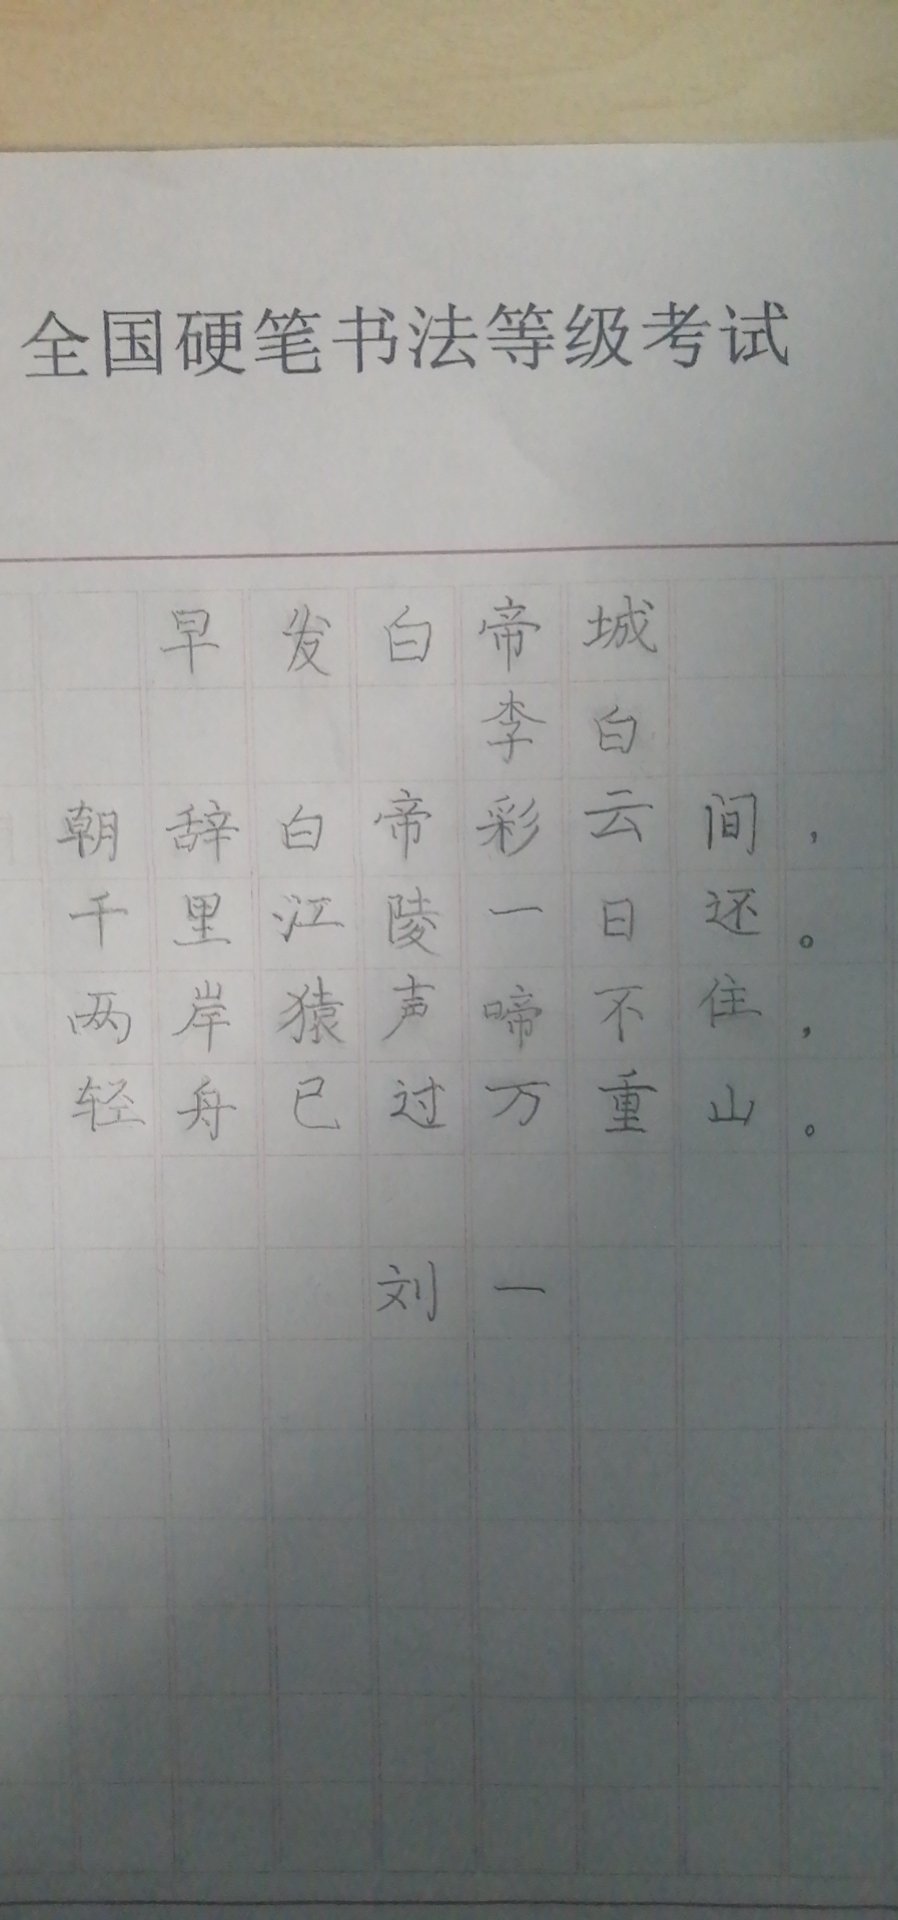 全国硬笔书法等级考试
早发白帝城
李白
朝辞白帝彩云间，
千里江陵一日还。
两岸猿声啼不住，
轻舟已过万重山。
刘一